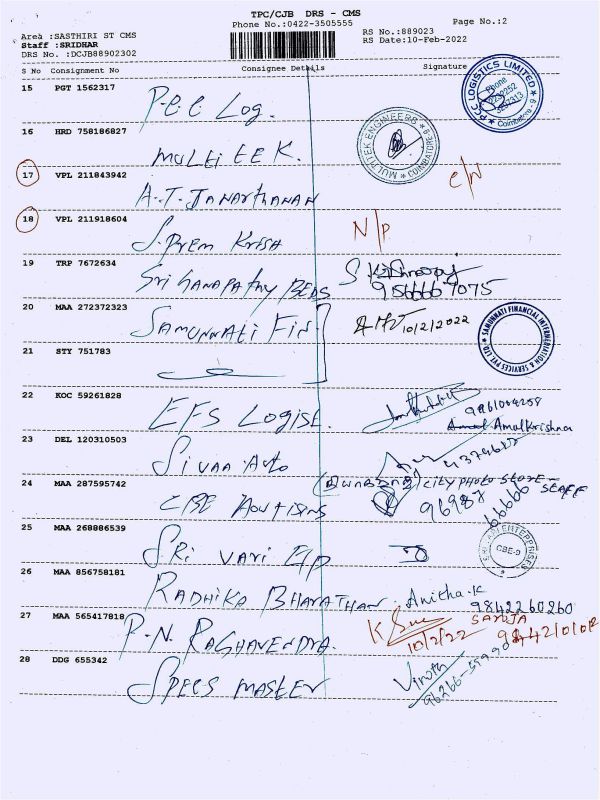 TPC/CJB DRS - CMS
Phone No.:0422-3505555
Page No.:2
Area :SASTHIRI ST CMS
Staff :SRIDHAR
DRS No. :DCJB88902302
RS No.:889023
RS Date:10-Feb-2022
S No Consignment No Consignee Details Signature
15 PGT 1562317
P.C.C Log.
PCC LOGISTICS LIMITED
Phone
Coimbatore
16 HRD 758186827
MULTI TEK.
MULTITEK ENGINEERS
COIMBATORE
17 VPL 211843942
A.T. JANARTHANAN
C/N
18 VPL 211918604
S. PREM KRISH
N/P
19 TRP 7672634
SRI GANAPATHY BEDS
20 MAA 272372323
SAMUNNATI FIN
10/2/2022
SAMUNNATI FINANCIAL INTERMEDIATION & SERVICES PVT LTD.
21 STY 751783
22 KOC 59261828
EFS LOGIST.
Amal AmalKrishna
23 DEL 120310503
SIVAA AUTO
24 MAA 287595742
CBE ADVTISING
city photo store - STAFF
96987
66666
25 MAA 268886539
SRI VARI E/P
SRI VARI ENTERPRISES
CBE-9
26 MAA 856758181
RADHIKA BHARATHAN
Anitha.K
9842260260
27 MAA 565417818
R.N. RAGHAVENDRA
10/2/22
SAROJA
28 DDG 655342
SPECS MASTER
Vinoth